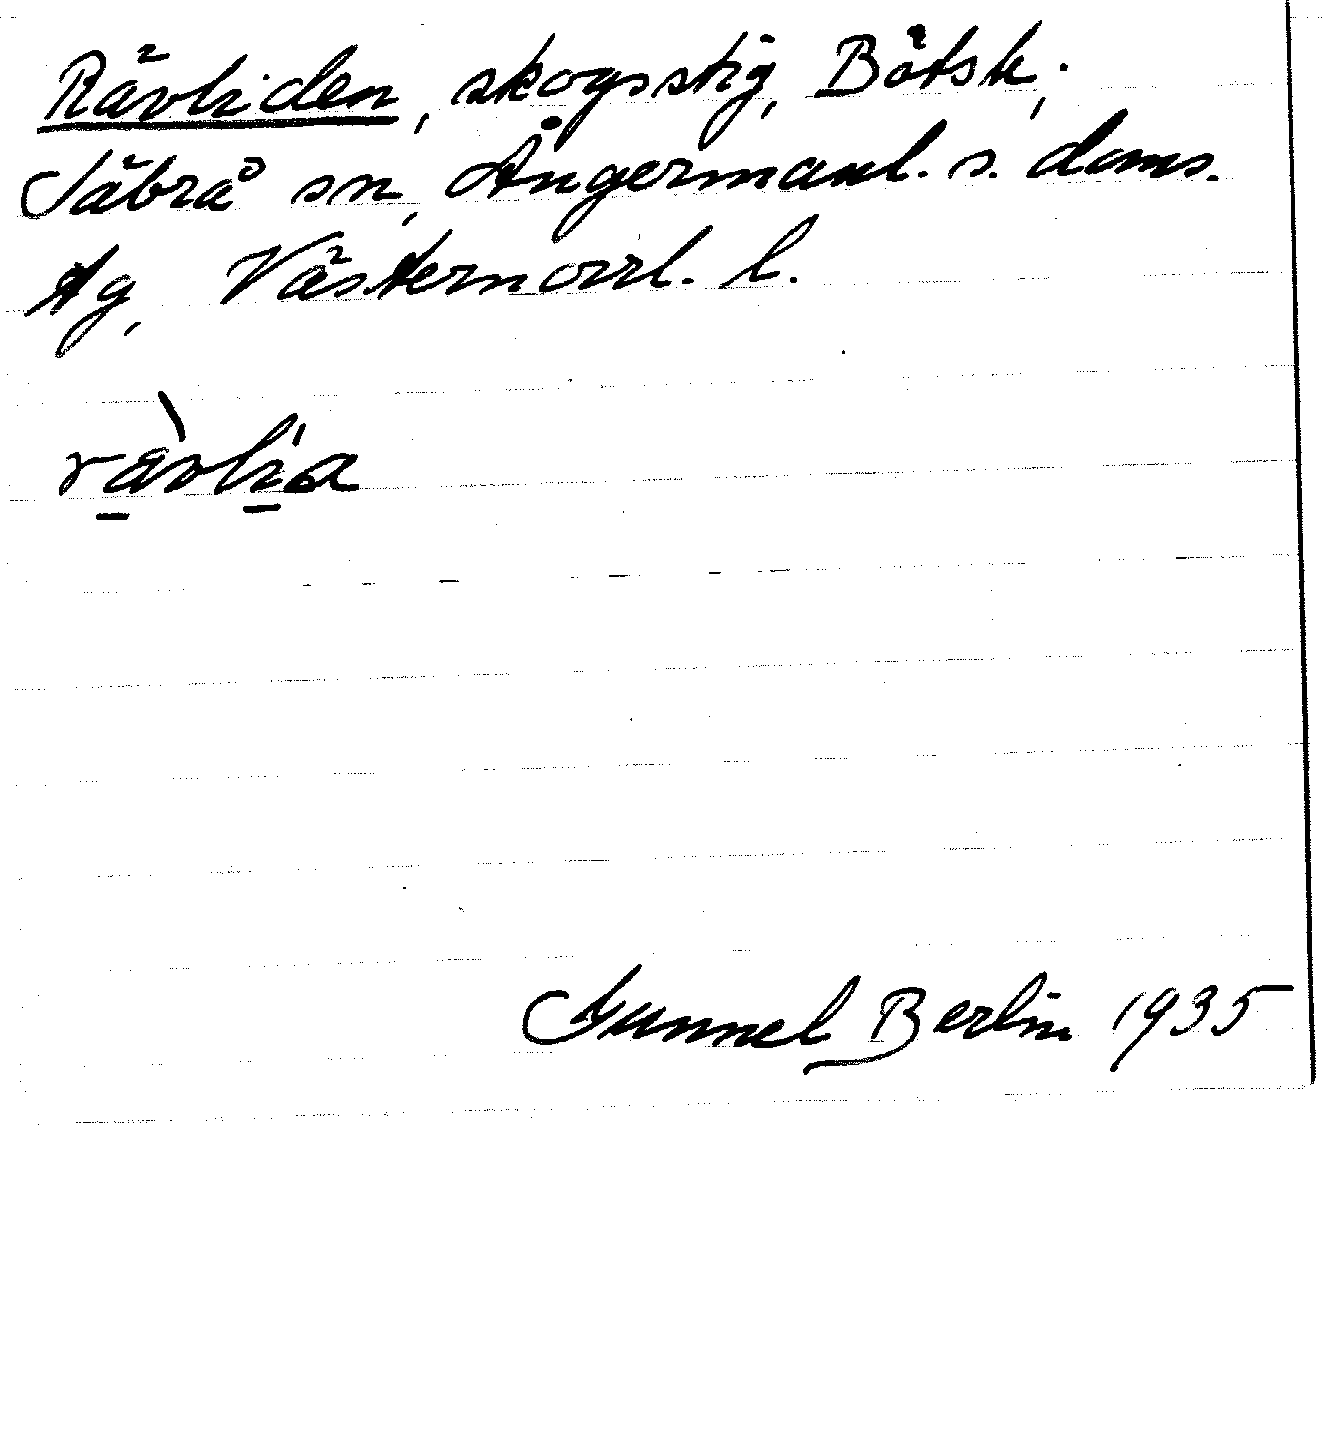 Rävliden, skogsstig, Bötsk,
Säbrå sn, Ångermanl. s. doms.
tg, Västernorrl. l.
rävlia
Gunnel Berlin 1935